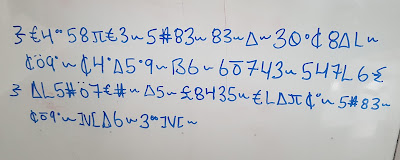 ꝫ£4°58π€3~5#83~83~Δ~30°₵8ΔL~
₵ö9°~₵4°Δ5°9~ẞ6~6ō743~547L6£
ꝫΔL5#ö7€#~Δ5~£8435~€LΔπ₵°~5#83~
₵ō9°~JV[Δ6~3°°JV[~